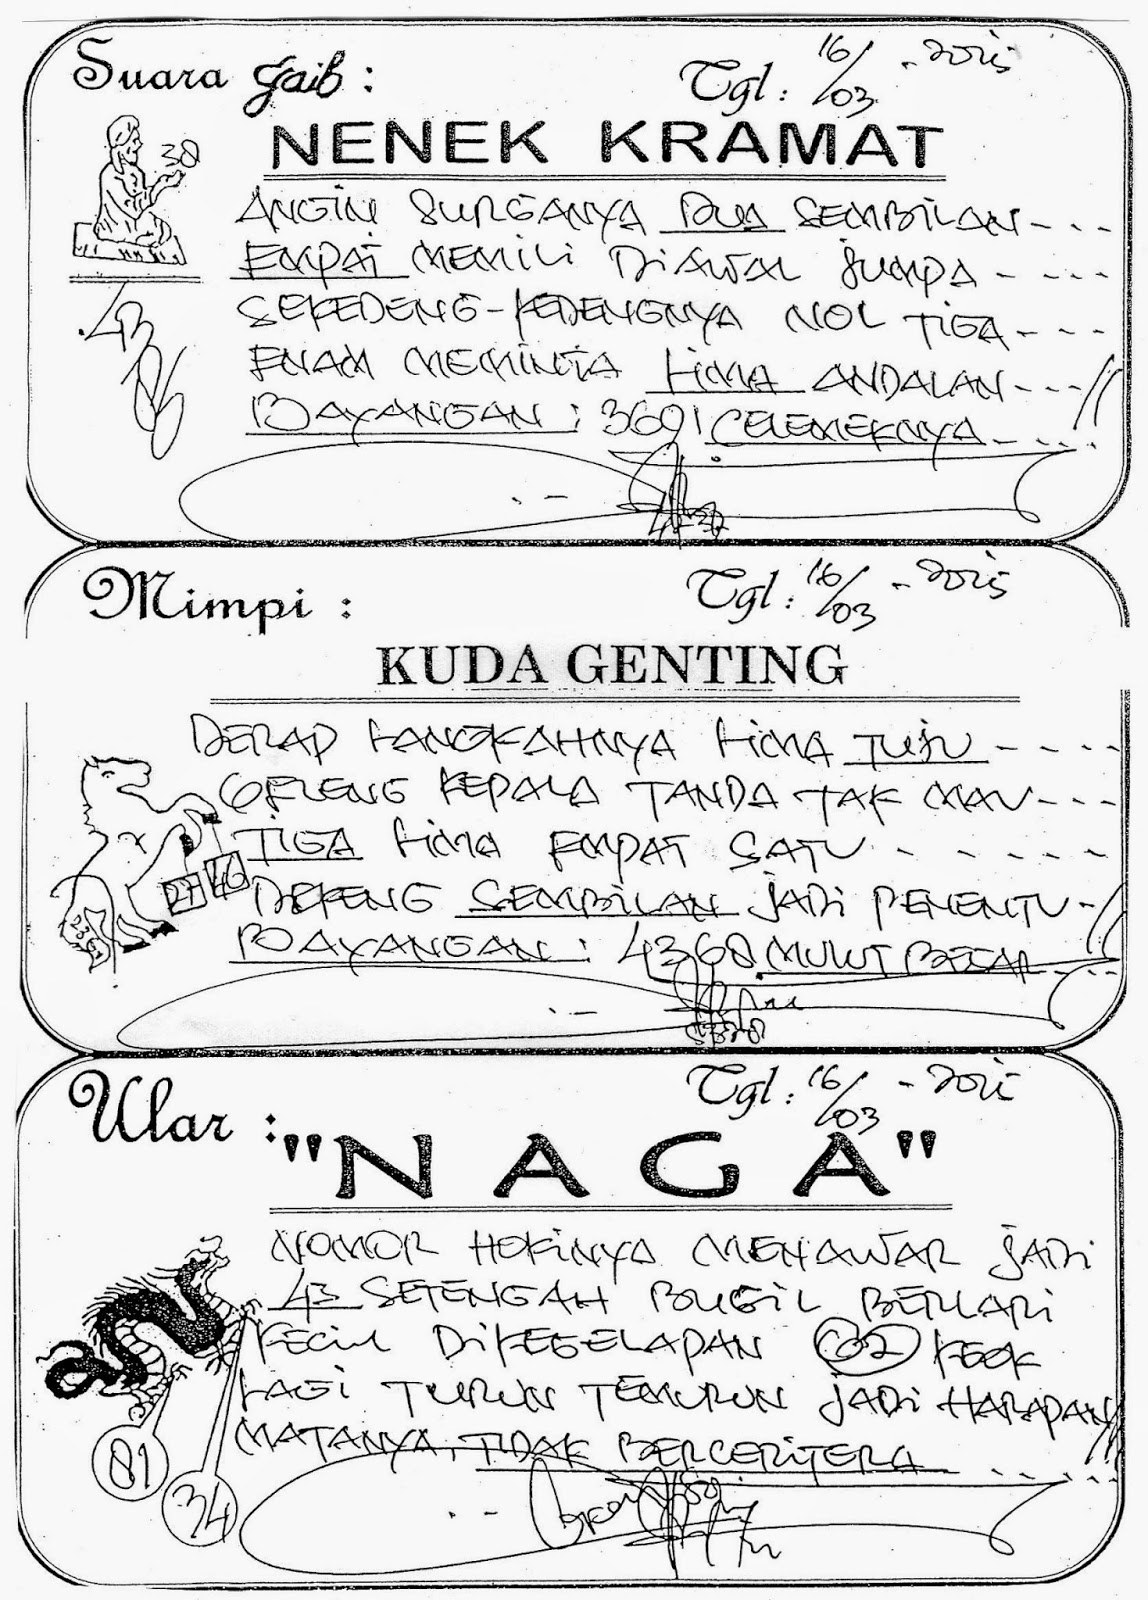 Suara Gaib :
Tgl : 16/03 - 2015
NENEK KRAMAT
38
ANGIN SURGANYA DUA SEMBILAN - - - -
EMPAT MEMILI DIAWAL JUMPA - - - -
SEKEDENG-KEDENGNYA NOL TIGA - - - -
ENAM MEMINTA LIMA ANDALAN - - - -
BAYANGAN : 3691 CELEMEKNYA - - - -
43
Mimpi :
Tgl : 16/03 - 2015
KUDA GENTING
DERAP LANGKAHNYA LIMA TUJU - - - -
GELENG KEPALA TANDA TAK MAU - - -
TIGA LIMA EMPAT SATU - - - - -
DEKENG SEMBILAN JADI PENENTU -
BAYANGAN : 4368 MULUT BESAR - - -
27 46
Ular :
Tgl : 16/03 - 2015
"NAGA"
NOMOR HOKINYA MENAWAR JADI
43 SETENGAH BUGIL BERLARI
KECIL DIKEGELAPAN 02 KEOK
LAGI TURUN TEMURUN JADI HARAPAN
MATANYA TIDAK BERCERITERA - - - -
81
34